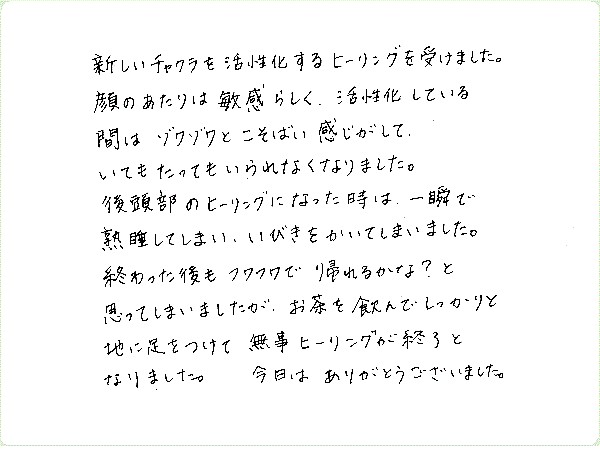 新しいチャクラを活性化するヒーリングを受けました。
顔のあたりは敏感らしく、活性化している
間は ゾワゾワと こそばい 感じがして、
いてもたってもいられなくなりました。
後頭部のヒーリングになった時は、一瞬で
熟睡してしまい、いびきをかいてしまいました。
終わった後も フワフワで 帰れるかな？と
思ってしまいましたが、お茶を飲んでしっかりと
地に足をつけて 無事ヒーリングが終了と
なりました。 今日は ありがとうございました。